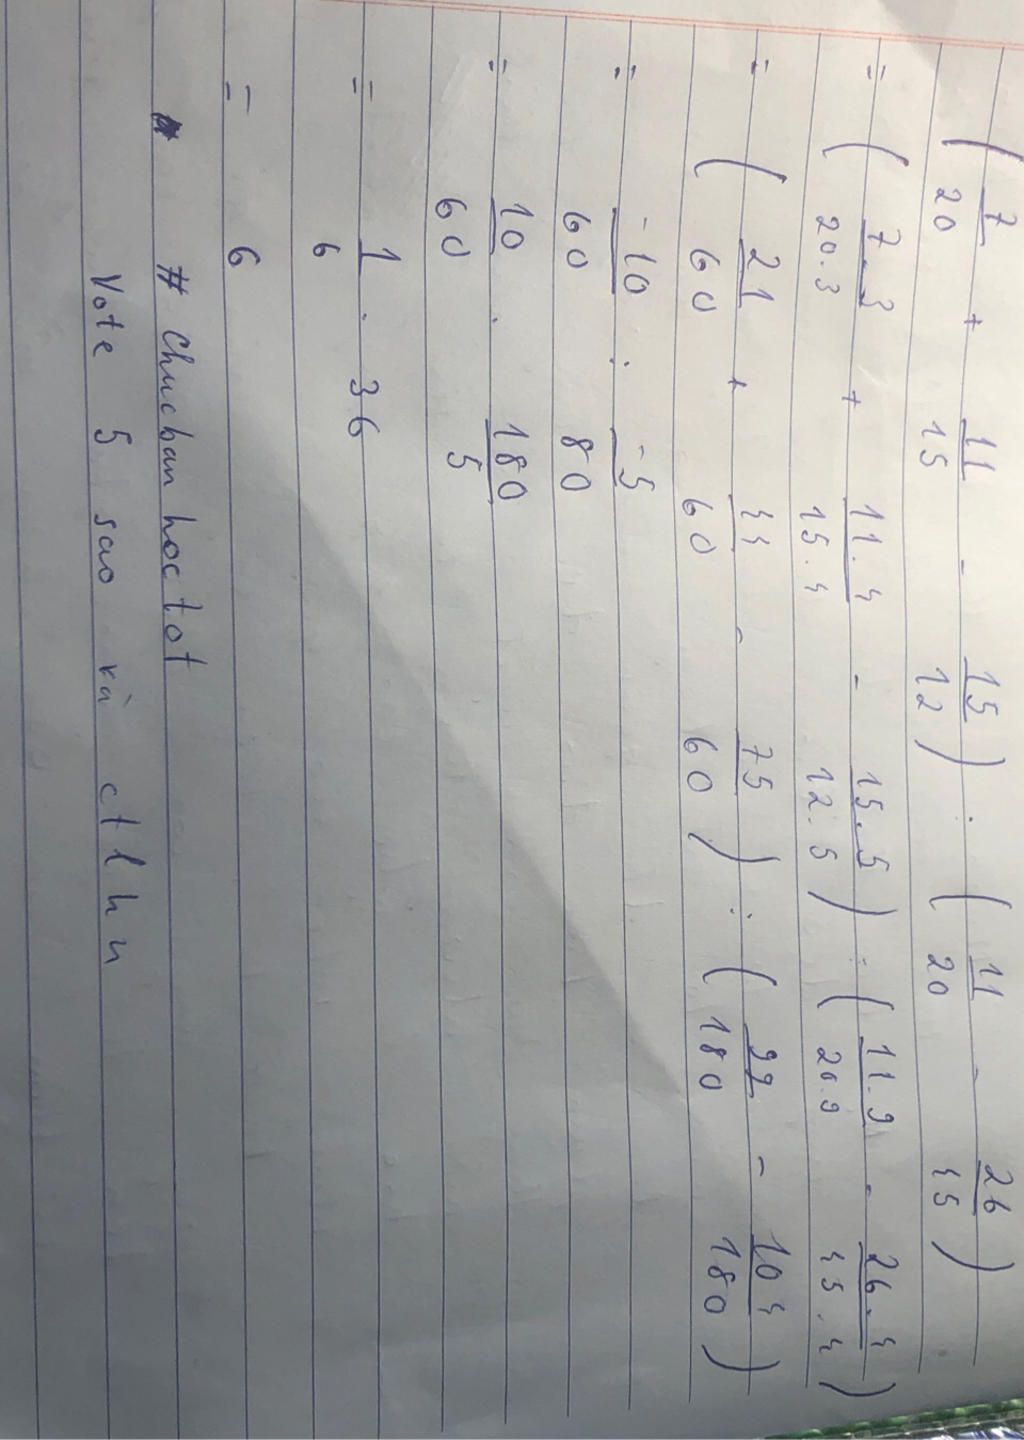 (7/20 + 11/15 - 15/12) : (11/20 - 26/45)
= (7.3/20.3 + 11.4/15.4 - 15.5/12.5) : (11.9/20.9 - 26.4/45.4)
= (21/60 + 44/60 - 75/60) : (99/180 - 104/180)
= -10/60 : -5/80
= 10/60 . 180/5
= 1/6 . 36
= 6
# Chucbanhoctot
Vote 5 sao và ctlhn